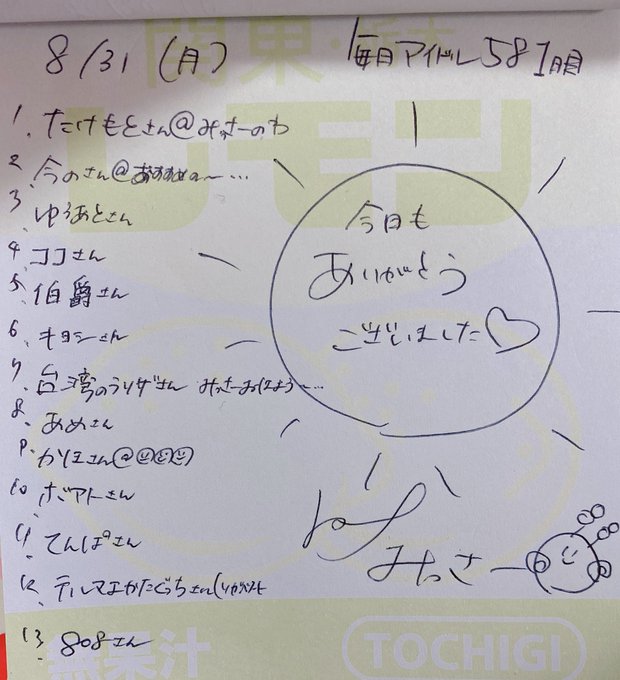 8/31(月)
毎日アイドル581日目
関東・栃木
レモン
1. たけもとさん@みっさーのわ
2. 今のさん@
3. ゆうあとさん
4. ココさん
5. 伯爵さん
6. キヨシさん
7. 台湾のうりざさん みっさーおはよう〜…
8. あめさん
9. かりまさん@
10. ボアトさん
11. てんぱさん
12. テルマエかたぐちさん
13. 808さん
今日も
ありがとう
ございました♡
みっさー
無果汁
TOCHIGI